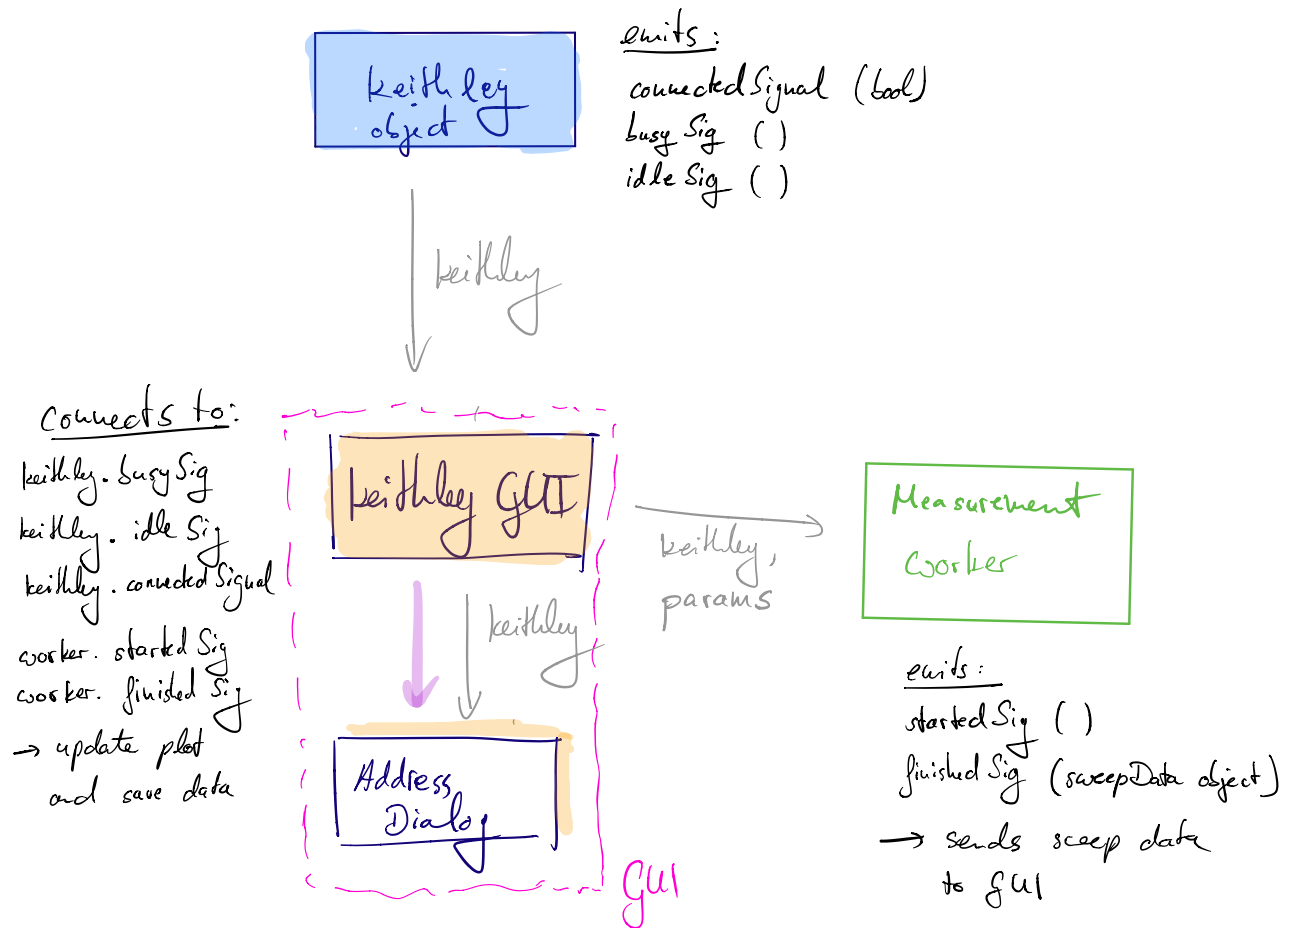 keithley
object
emits:
connectedSignal (bool)
busySig ( )
idleSig ( )
keithley
connects to:
keithley.busySig
keithley.idleSig
keithley.connectedSignal
worker.startedSig
worker.finishedSig
→ update plot
and save data
keithley GUI
keithley
Address
Dialog
GUI
keithley,
params
Measurement
worker
emits:
startedSig ( )
finishedSig (sweepData object)
→ sends sweep data
to GUI